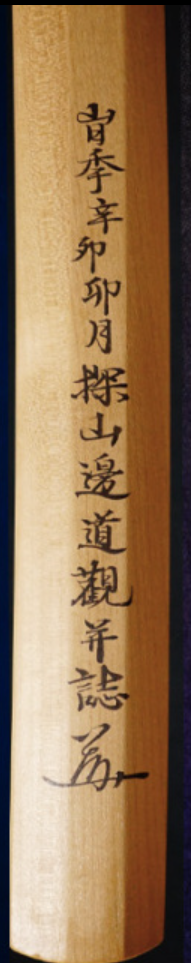 旹季辛卯卯月探山邊道觀并誌